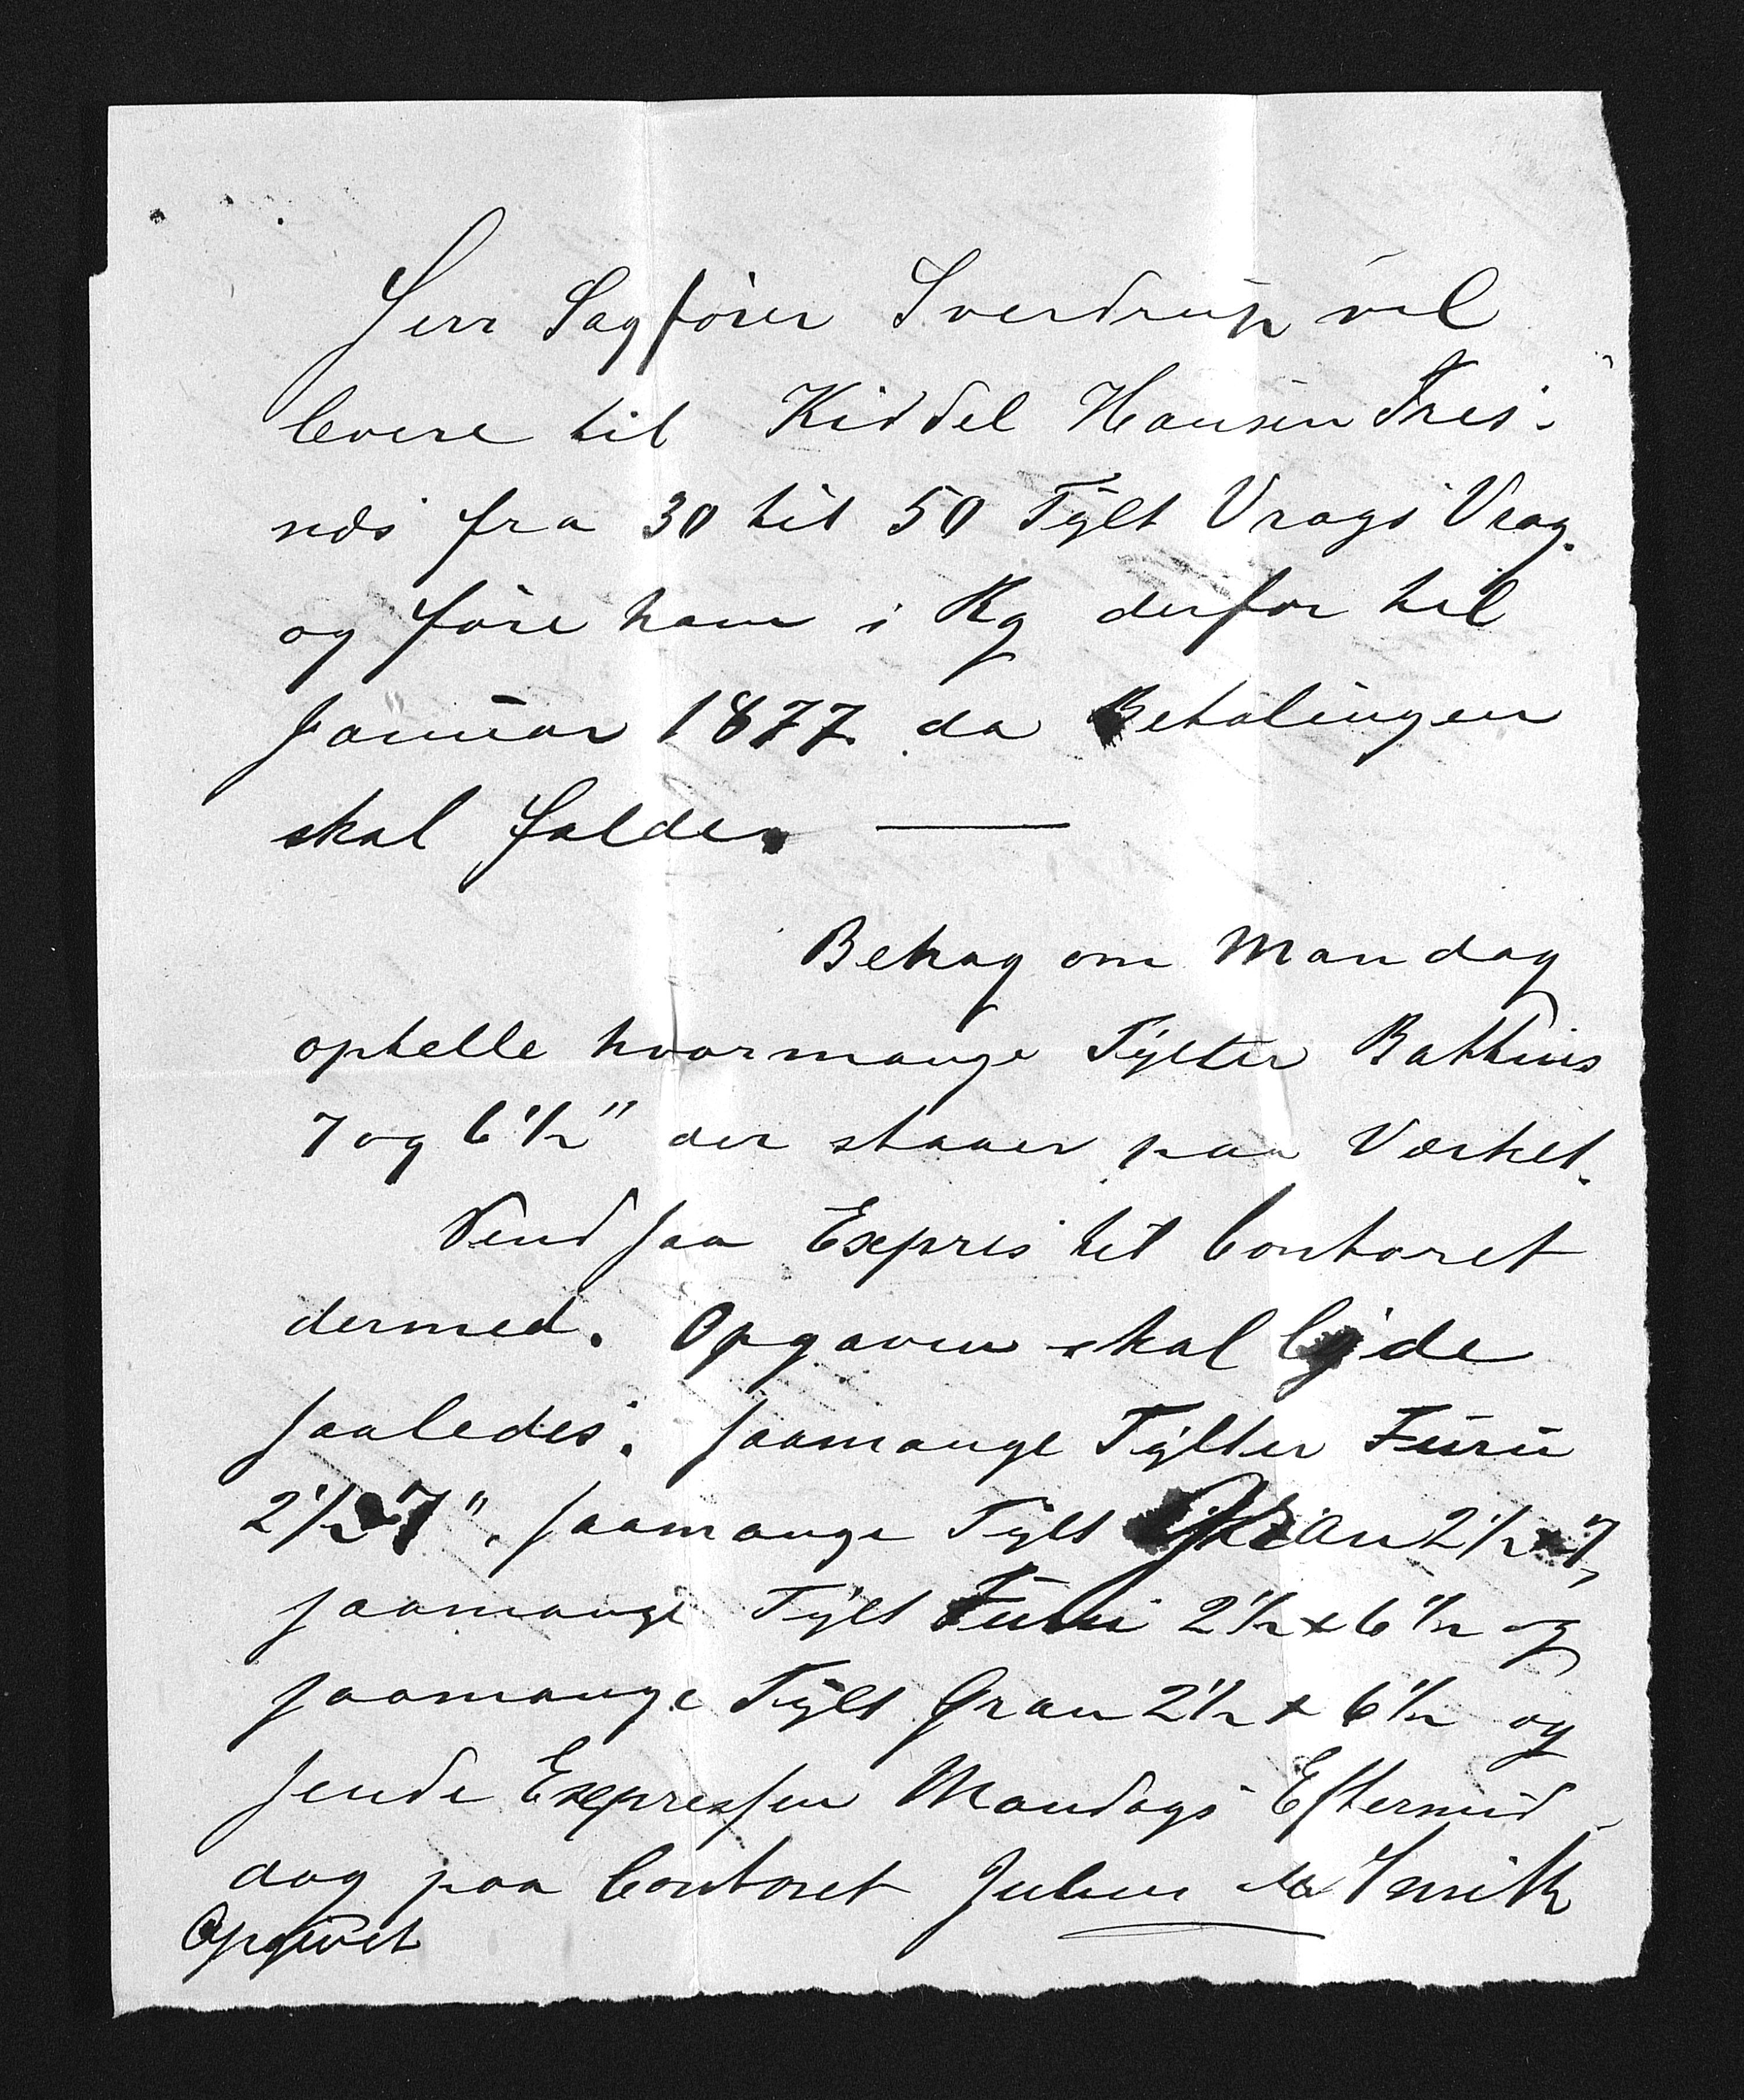 Herr Sagfører Sverdrup vil
levere til Kiddel Hansen Tres-
næs fra 30 til 50 Tylt Vrags Vrag.
og føre ham i Rg derfor til
Januar 1877 da Betalingen
skal falde.
Behag om Mandag
optelle hvormange Tylter Battens
7 og 6 1/2" der staaer paa Værket.
Send saa Expres til Contoret
dermed. Opgaven skal lyde
saaledes: saamange Tylter Furu
2 1/2 x 7". saamange Tylt Gran 2 1/2 x 7,
saamange Tylt Furu 2 1/2 x 6 1/2 og
saamange Tylt Gran 2 1/2 x 6 1/2 og
sende Expressen Mandags Eftermid-
dag paa Contoret Smith
Opgivet